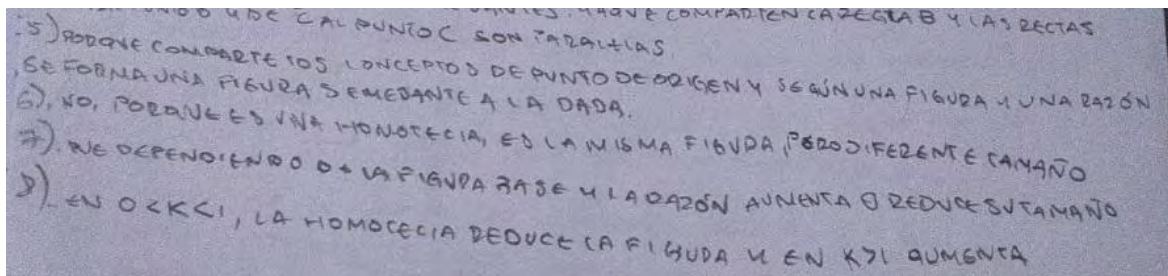 COMPARTEN LA REGLA B Y LAS RECTAS
Y DE C AL PUNTO C SON PARALELAS.
5) PORQUE COMPARTE LOS CONCEPTOS DE PUNTO DE ORIGEN Y SEGÚN UNA FIGURA Y UNA RAZÓN
SE FORMA UNA FIGURA SEMEJANTE A LA DADA.
6). NO, PORQUE ES UNA HOMOTECIA, ES LA MISMA FIGURA, PERO DIFERENTE TAMAÑO
7). QUE DEPENDIENDO DE LA FIGURA BASE Y LA RAZÓN AUMENTA O REDUCE SU TAMAÑO
8). EN 0<K<1, LA HOMOTECIA REDUCE LA FIGURA Y EN K>1 AUMENTA